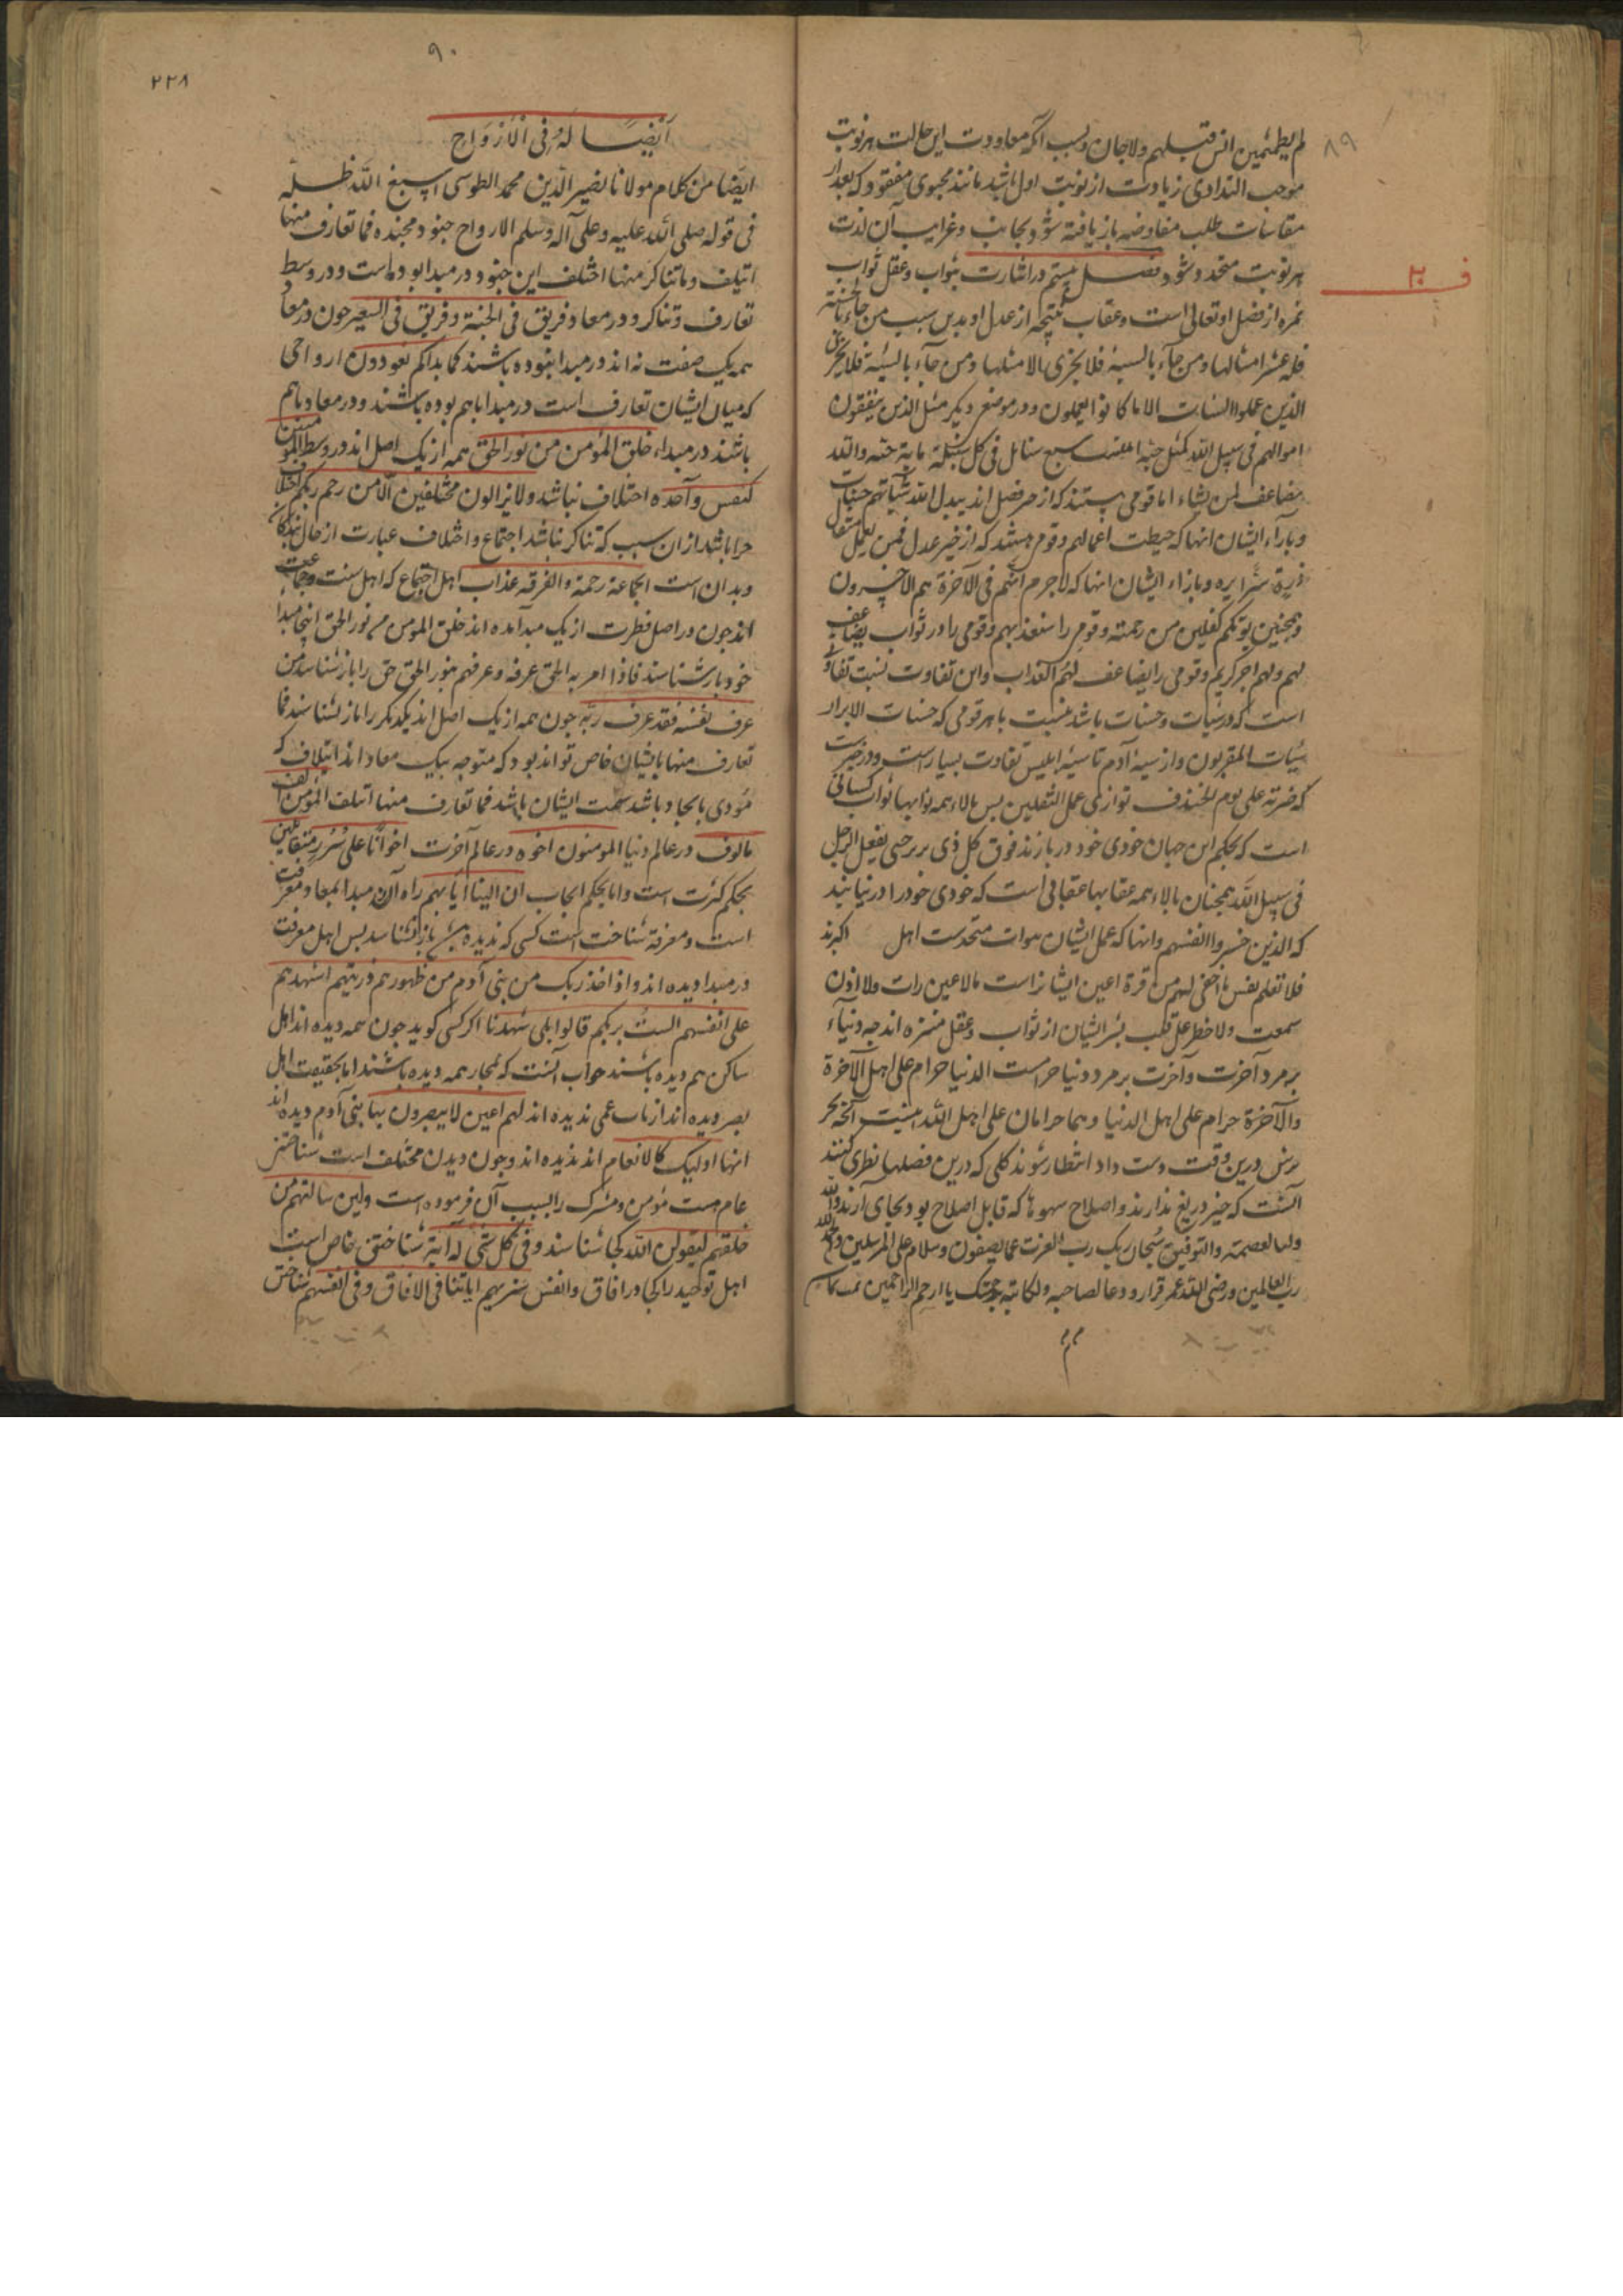 ۸۹
لم یطمثهن انس قبلهم ولا جان و بسبب آنکه معاودت این حالت هر نوبت
موجب التذاذی زیادت از نوبت اول باشد مانند محبوبی مفقود که بعد از
مقاسات طلب مفاوضه باز یافته شود و بجانب وغرایب آن لذت
هر نوبت متجدد شود فصل بیستم در اشارت بثواب و عقاب ثواب
ف ۲۰
ثمره از فضل او تعالی است و عقاب نتیجه از عدل او بدین سبب من جاء بالحسنة
فله عشر امثالها و من جآء بالسیئة فلا یجزی الا مثلها و من جآء بالسیئة فلا یجزی
الذین عملوا السیئات الا ما کانوا یعملون و در موضع دیگر مثل الذین ینفقون
اموالهم فی سبیل الله کمثل حبة انبتت سبع سنابل فی کل سنبلة مایة حبة والله
یضاعف لمن یشاء اما قومی هستند که از حد فضل اند یبدل الله سیاتهم حسنات
و بازآء ایشان انها که حبطت اعمالهم و قومی هستند که از خیر عدل فمن یعمل مثقال
ذرة شرا یره و بازاء ایشان انها که لاجرم انهم فی الآخرة هم الاخسرون
و همچنین یؤتکم کفلین من رحمته و قومی را سنعذبهم و قومی را در ثواب یضاعف
لهم ولهم اجر کریم و قومی را یضاعف لهم العذاب و این تفاوت بسبب تفاوتی
است که در سیات و حسنات باشد بنسبت با هر قومی که حسنات الابرار
سیات المقربون و از سیئه آدم تا سیئه ابلیس تفاوت بسیار است و در خبرست
که ضربة علی یوم الخندف توازی عمل الثقلین پس بالاء همه ثوابها ثواب کسانی
است که بحکم این جهان خودی خود در بازند فوق کل ذی بر بر حتی یقتل الرجل
فی سبیل الله همچنان بالاء همه عقابها عقابی است که خودی خود را در زیانند
که الذین خسروا انفسهم و انها که عمل ایشان بثواب متحدست اهل اکبرند
فلا تعلم نفس ما اخفی لهم من قرة اعین ایشانراست مالاعین رات ولا اذن
سمعت ولا خطر علی قلب بشر ایشان از ثواب و عقل منزه اند چه دنیاء
بر مرد آخرت و آخرت بر مرد دنیا حرامست الدنیا حرام علی اهل الآخرة
والآخرة حرام علی اهل الدنیا و هما حرامان علی اهل الله اینست آنچه بحر
برس درین وقت دست داد انتظار شوند کلی که درین فصلها نظری کنند
آنست که خیر دریغ ندارند و اصلاح سهوها که قابل اصلاح بود بجای آرند والله
ولی العصمة والتوفیق سبحان ربک رب العزت عما یصفون و سلام علی المرسلین والحمد لله
رب العالمین و رضی الله عمن قرا و دعا لصاحبه و لکاتبه برحمتک یا ارحم الراحمین تمت تمام
م م م
۹۰
۲۲۸
أیضًا لَهُ فی الْأَرْوَاح
ایضا من کلام مولانا نصیر الدین محمد الطوسی اسبغ الله ظله
فی قوله صلی الله علیه و علی آله و سلم الارواح جنود مجنده فما تعارف منها
ائتلف و ما تناکر منها اختلف این جنود در مبدا بوده است و در وسط
تعارف و تناکر و در معاد فریق فی الجنة و فریق فی السعیر چون در معاد
همه یک صفت نه اند در مبدا نبوده باشند کما بداکم تعودون ارواحی
که میان ایشان تعارف است در مبدا با هم بوده باشند و در معاد با هم
باشند در مبداء خلق المؤمن من نور الحق همه از یک اصل اند در وسط المؤمنون
کنفس واحده اختلاف نباشد ولا یزالون مختلفین الا من رحم ربکم اختلاف
چرا باشد از ان سبب که تناکر باشد اجتماع و اختلاف عبارت از حال نیکان
و بدان است الجماعة رحمة والفرقه عذاب اهل اجتماع که اهل سنت و جماعت
اند چون در اصل فطرت از یک مبدا آمده اند خلق المؤمن من نور الحق اینجا مبدا
خود باز شناسند فاذا امر به الحق عرفه و عرفهم بنور الحق حق را باز شناسد من
عرف نفسه فقد عرف ربه چون همه از یک اصل اند یکدیگر را باز شناسند فما
تعارف منها بایشان خاص تواند بود که متوجه بیک معاد اند ایتلاف که
مؤدی باتحاد باشد سمت ایشان باشد فما تعارف منها ائتلف المؤمن الف
مالوف در عالم دنیا المومنون اخوه در عالم آخرت اخوانا علی سرر متقابلین
بحکم کثرت است و اما بحکم ایجاب ان الینا ایابهم راه آن مبدا بمعاد معرفت
است و معرفة شناخت است کسی که ندیده باز نشناسد پس اهل معرفت
در مبدا دیده اند و اذ اخذ ربک من بنی آدم من ظهورهم ذریتهم اشهدهم
علی انفسهم الست بربکم قالوا بلی شهدنا اکر کسی گوید چون همه دیده اند اهل
ساکن هم دیده باشند جواب آنست که بمجاز همه دیده باشند اما بحقیقت اهل
بصر دیده اند ارباب عمی ندیده اند لهم اعین لا یبصرون بها بنی آدم دیده اند
انها اولیک کالانعام اند ندیده اند و چون دیدن مختلف است شناختن
عام هست مؤمن و مشرک را بسبب آن فرموده است ولین سالتهم من
خلقهم لیقولن الله کجا شناسند و فی کل شی له آیة شناختن خاص است
اهل توحید را کجا در افاق و انفس سنریهم ایاتنا فی الافاق و فی انفسهم شناختن